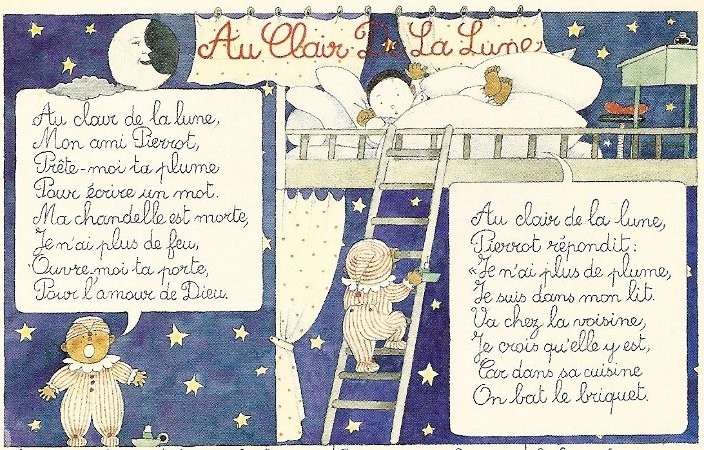 Au Clair De La Lune
Au clair de la lune,
Mon ami Pierrot,
Prête-moi ta plume
Pour écrire un mot.
Ma chandelle est morte,
Je n'ai plus de feu,
Ouvre-moi ta porte,
Pour l'amour de Dieu.
Au clair de la lune,
Pierrot répondit:
«Je n'ai plus de plume,
Je suis dans mon lit.
Va chez la voisine,
Je crois qu'elle y est,
Car dans sa cuisine
On bat le briquet.